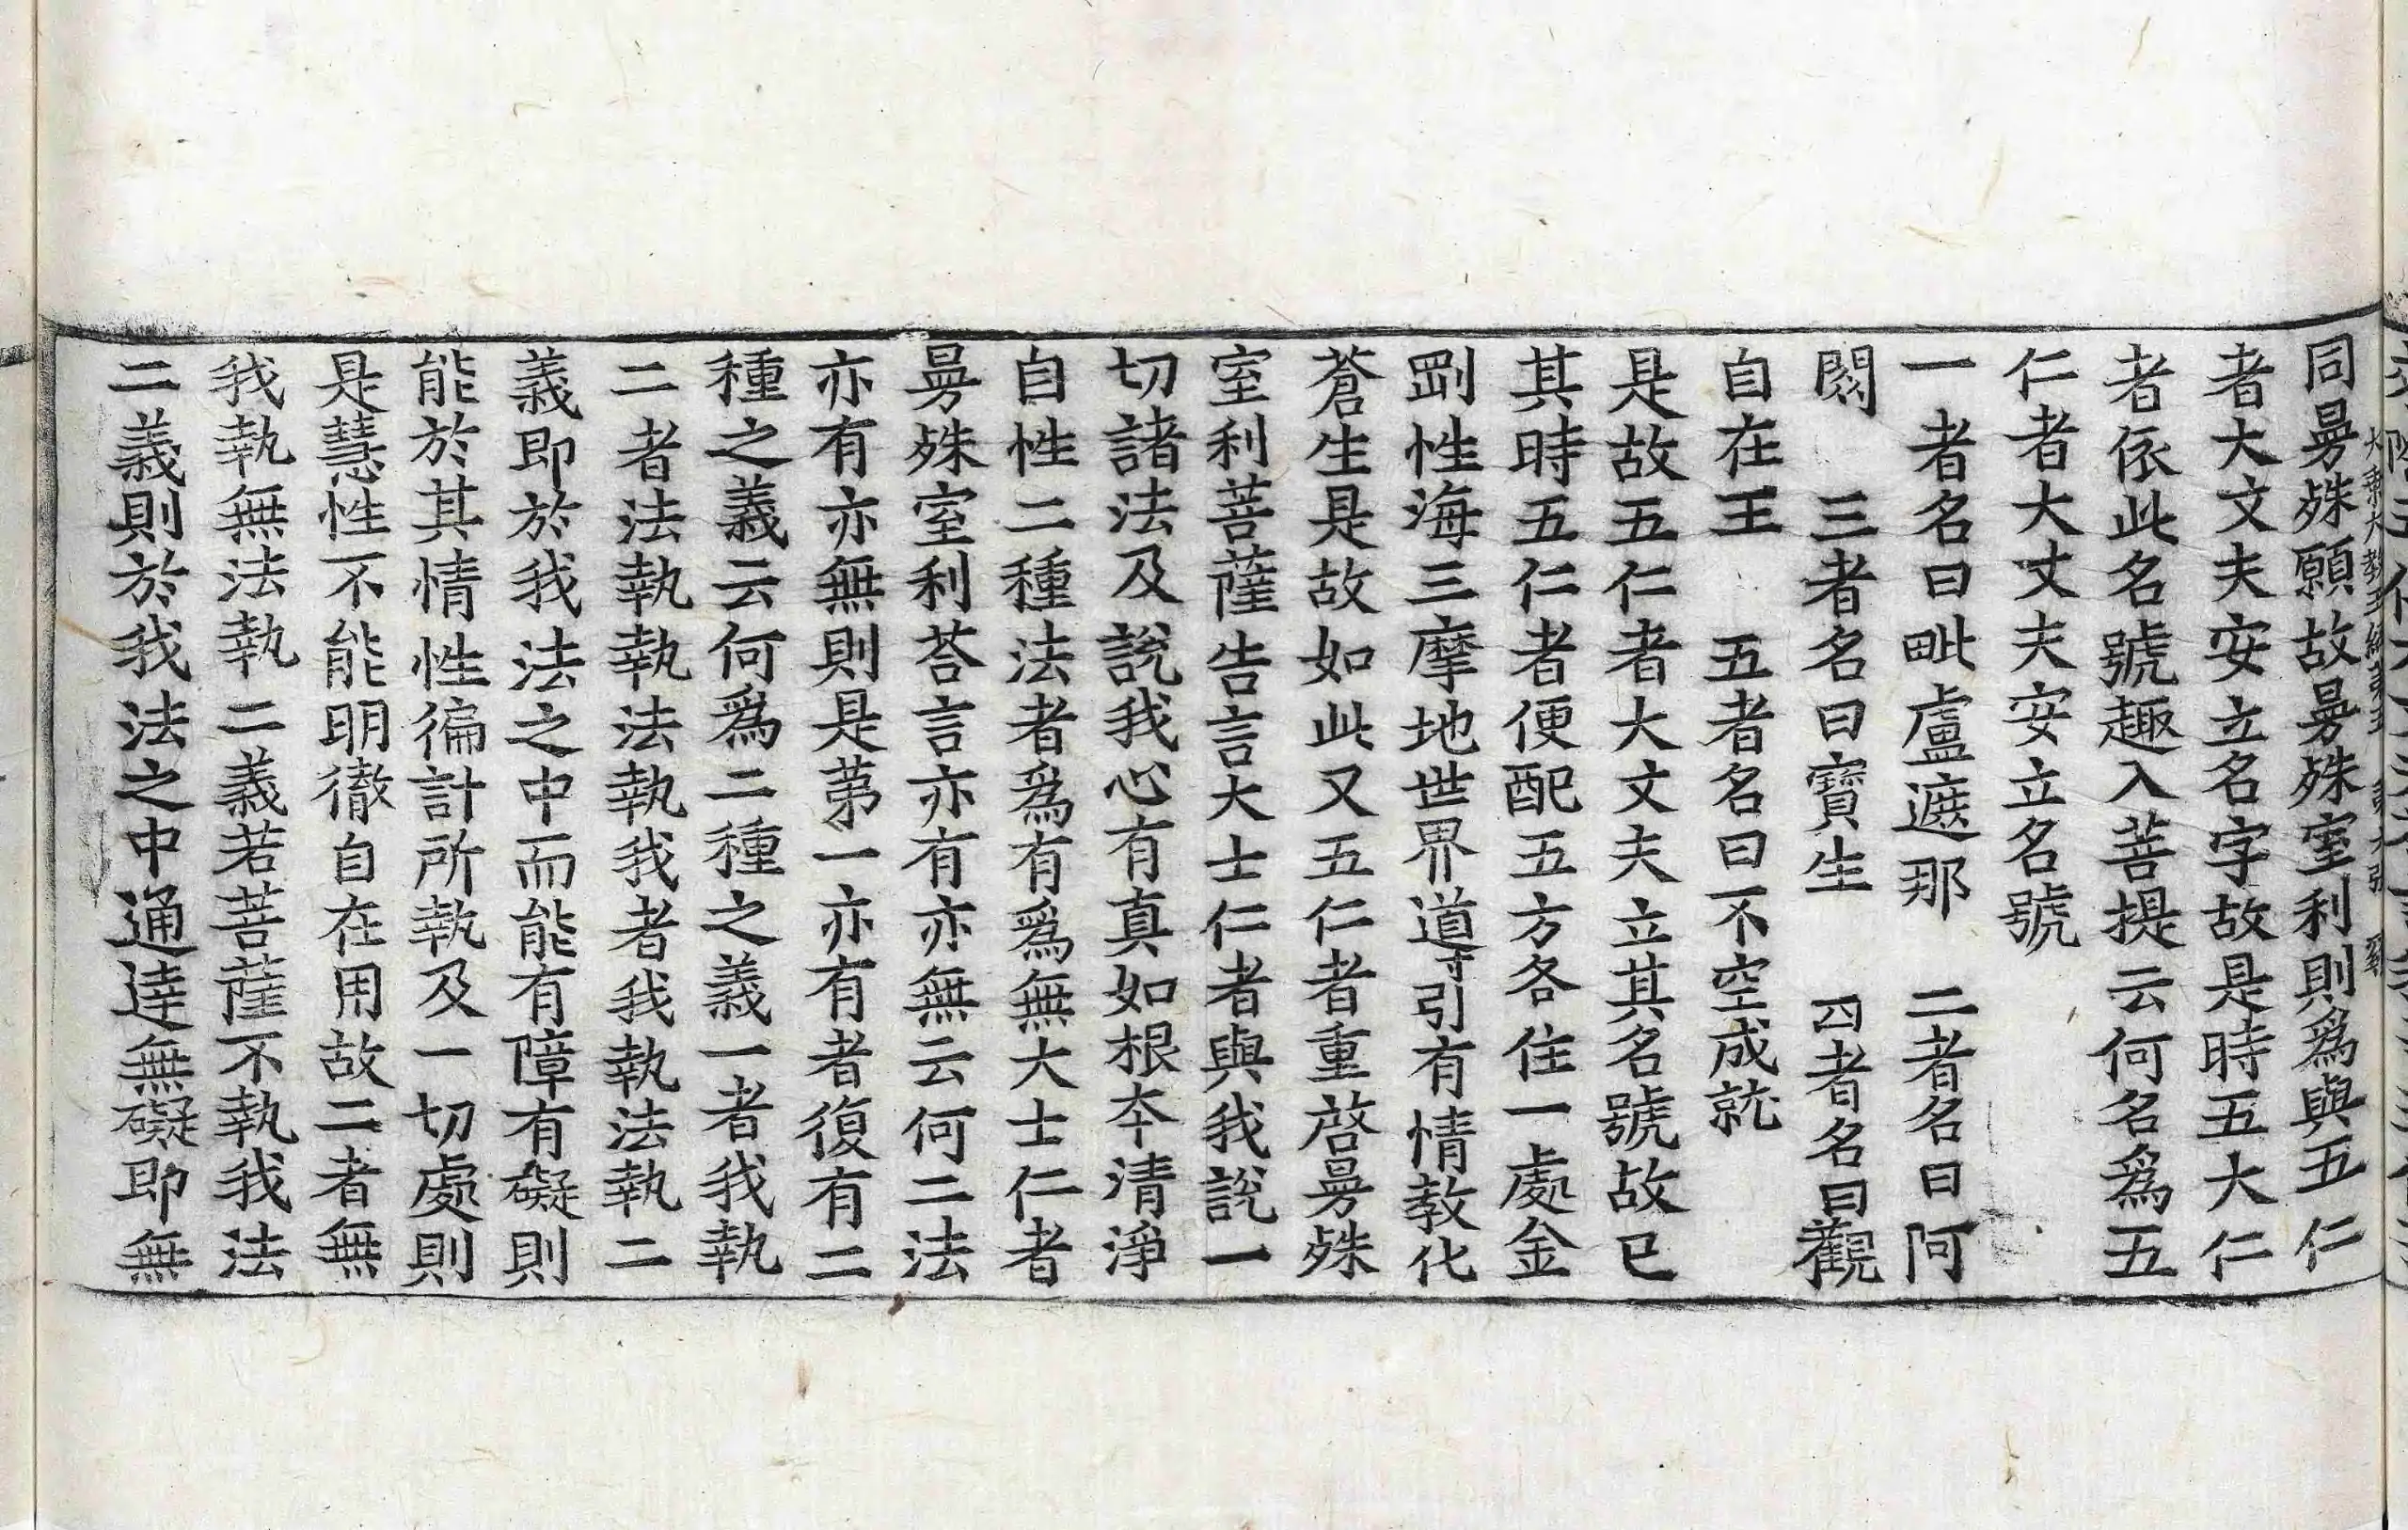 同曼殊願故曼殊室利則爲與五仁
者大文夫安立名字故是時五大仁
者依此名號趣入菩提云何名爲五
仁者大丈夫安立名號
一者名曰毗盧遮那　二者名曰阿
閦　三者名曰寶生　四者名曰觀
自在王　五者名曰不空成就
是故五仁者大文夫立其名號故已
其時五仁者便配五方各住一處金
剛性海三摩地世界導引有情教化
蒼生是故如此又五仁者重啓曼殊
室利菩薩告言大士仁者與我說一
切諸法及說我心有真如根本清淨
自性二種法者爲有爲無大士仁者
曼殊室利荅言亦有亦無云何二法
亦有亦無則是苐一亦有者復有二
種之義云何爲二種之義一者我執
二者法執執法執我者我執法執二
義即於我法之中而能有障有礙則
能於其情性徧計所執及一切處則
是慧性不能明徹自在用故二者無
我執無法執二義若菩薩不執我法
二義則於我法之中通達無礙即無